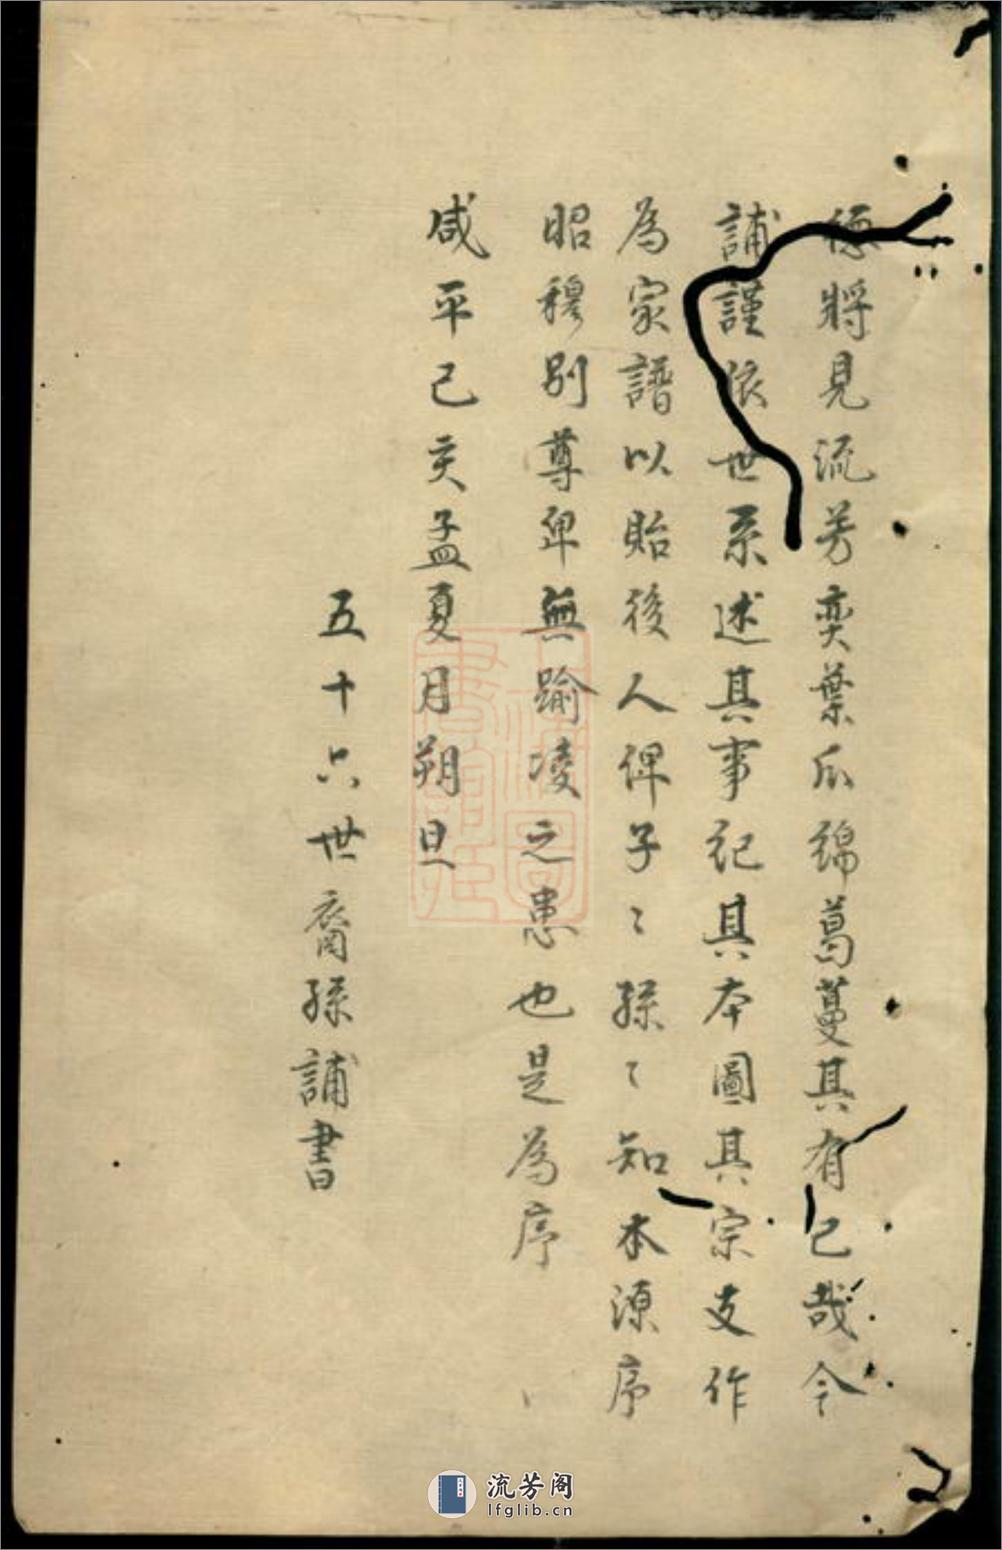 德將見流芳奕葉瓜綿葛蔓其有已哉今
誧謹依世系述其事紀其本圖其宗支作
為家譜以貽後人俾子〻孫〻知本源序
昭穆別尊卑無踰凌之患也是為序
咸平己亥孟夏月朔旦
五十六世裔孫誧書
流芳阁
lfglib.cn